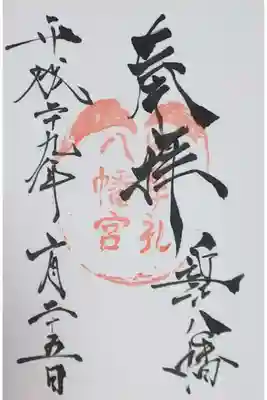 奉拝
八幡
礼
八幡宮
平成二十九年 六月二十五日